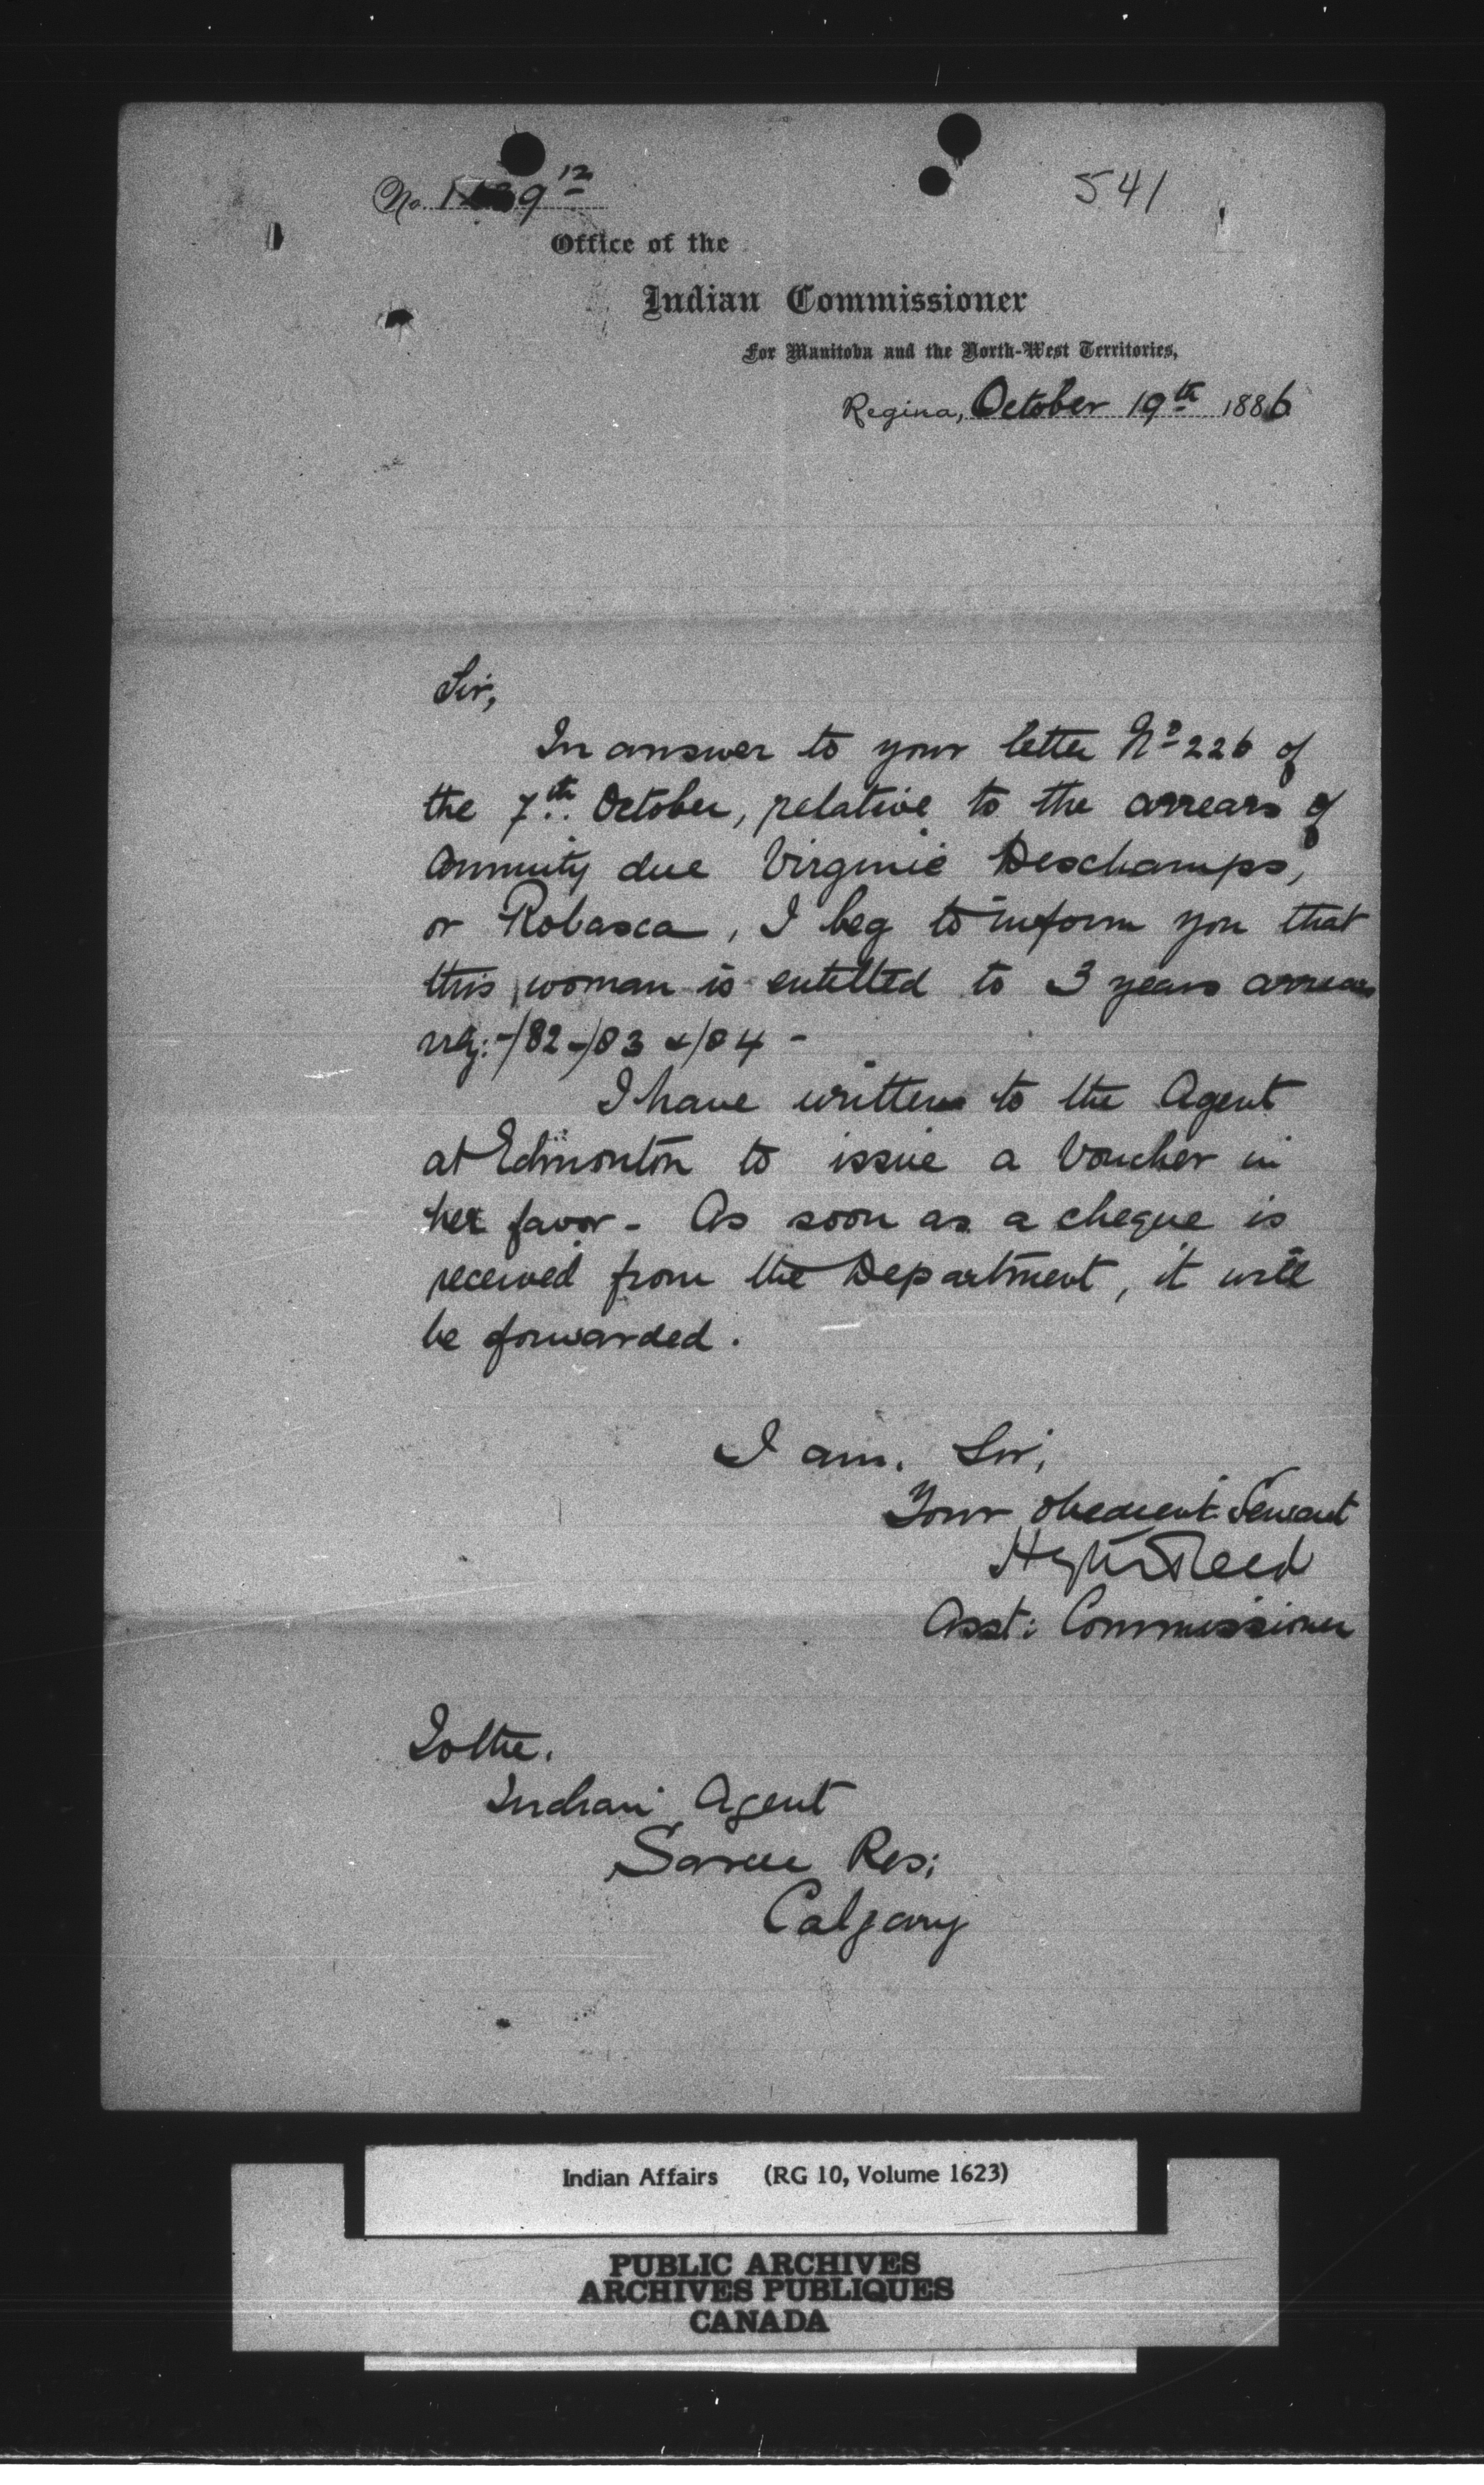 No. 9 12
541
Office of the
Indian Commissioner
For Manitoba and the North-West Territories,
Regina, October 19th 1886
Sir,
In answer to your letter No 226 of
the 7th October, relative to the arrears of
Annuity due Virginie Deschamps,
or Robasca, I beg to inform you that
this woman is entitled to 3 years arrears
viz:-/82-/83 &/84 -
I have written to the Agent
at Edmonton to issue a Voucher in
her favor - As soon as a cheque is
received from the Department, it will
be forwarded.
I am. Sir,
Your obedient Servant
Hayter Reed
Asst: Commissioner
To the.
Indian Agent
Sarcee Res:
Calgary
Indian Affairs (RG 10, Volume 1623)
PUBLIC ARCHIVES
ARCHIVES PUBLIQUES
CANADA